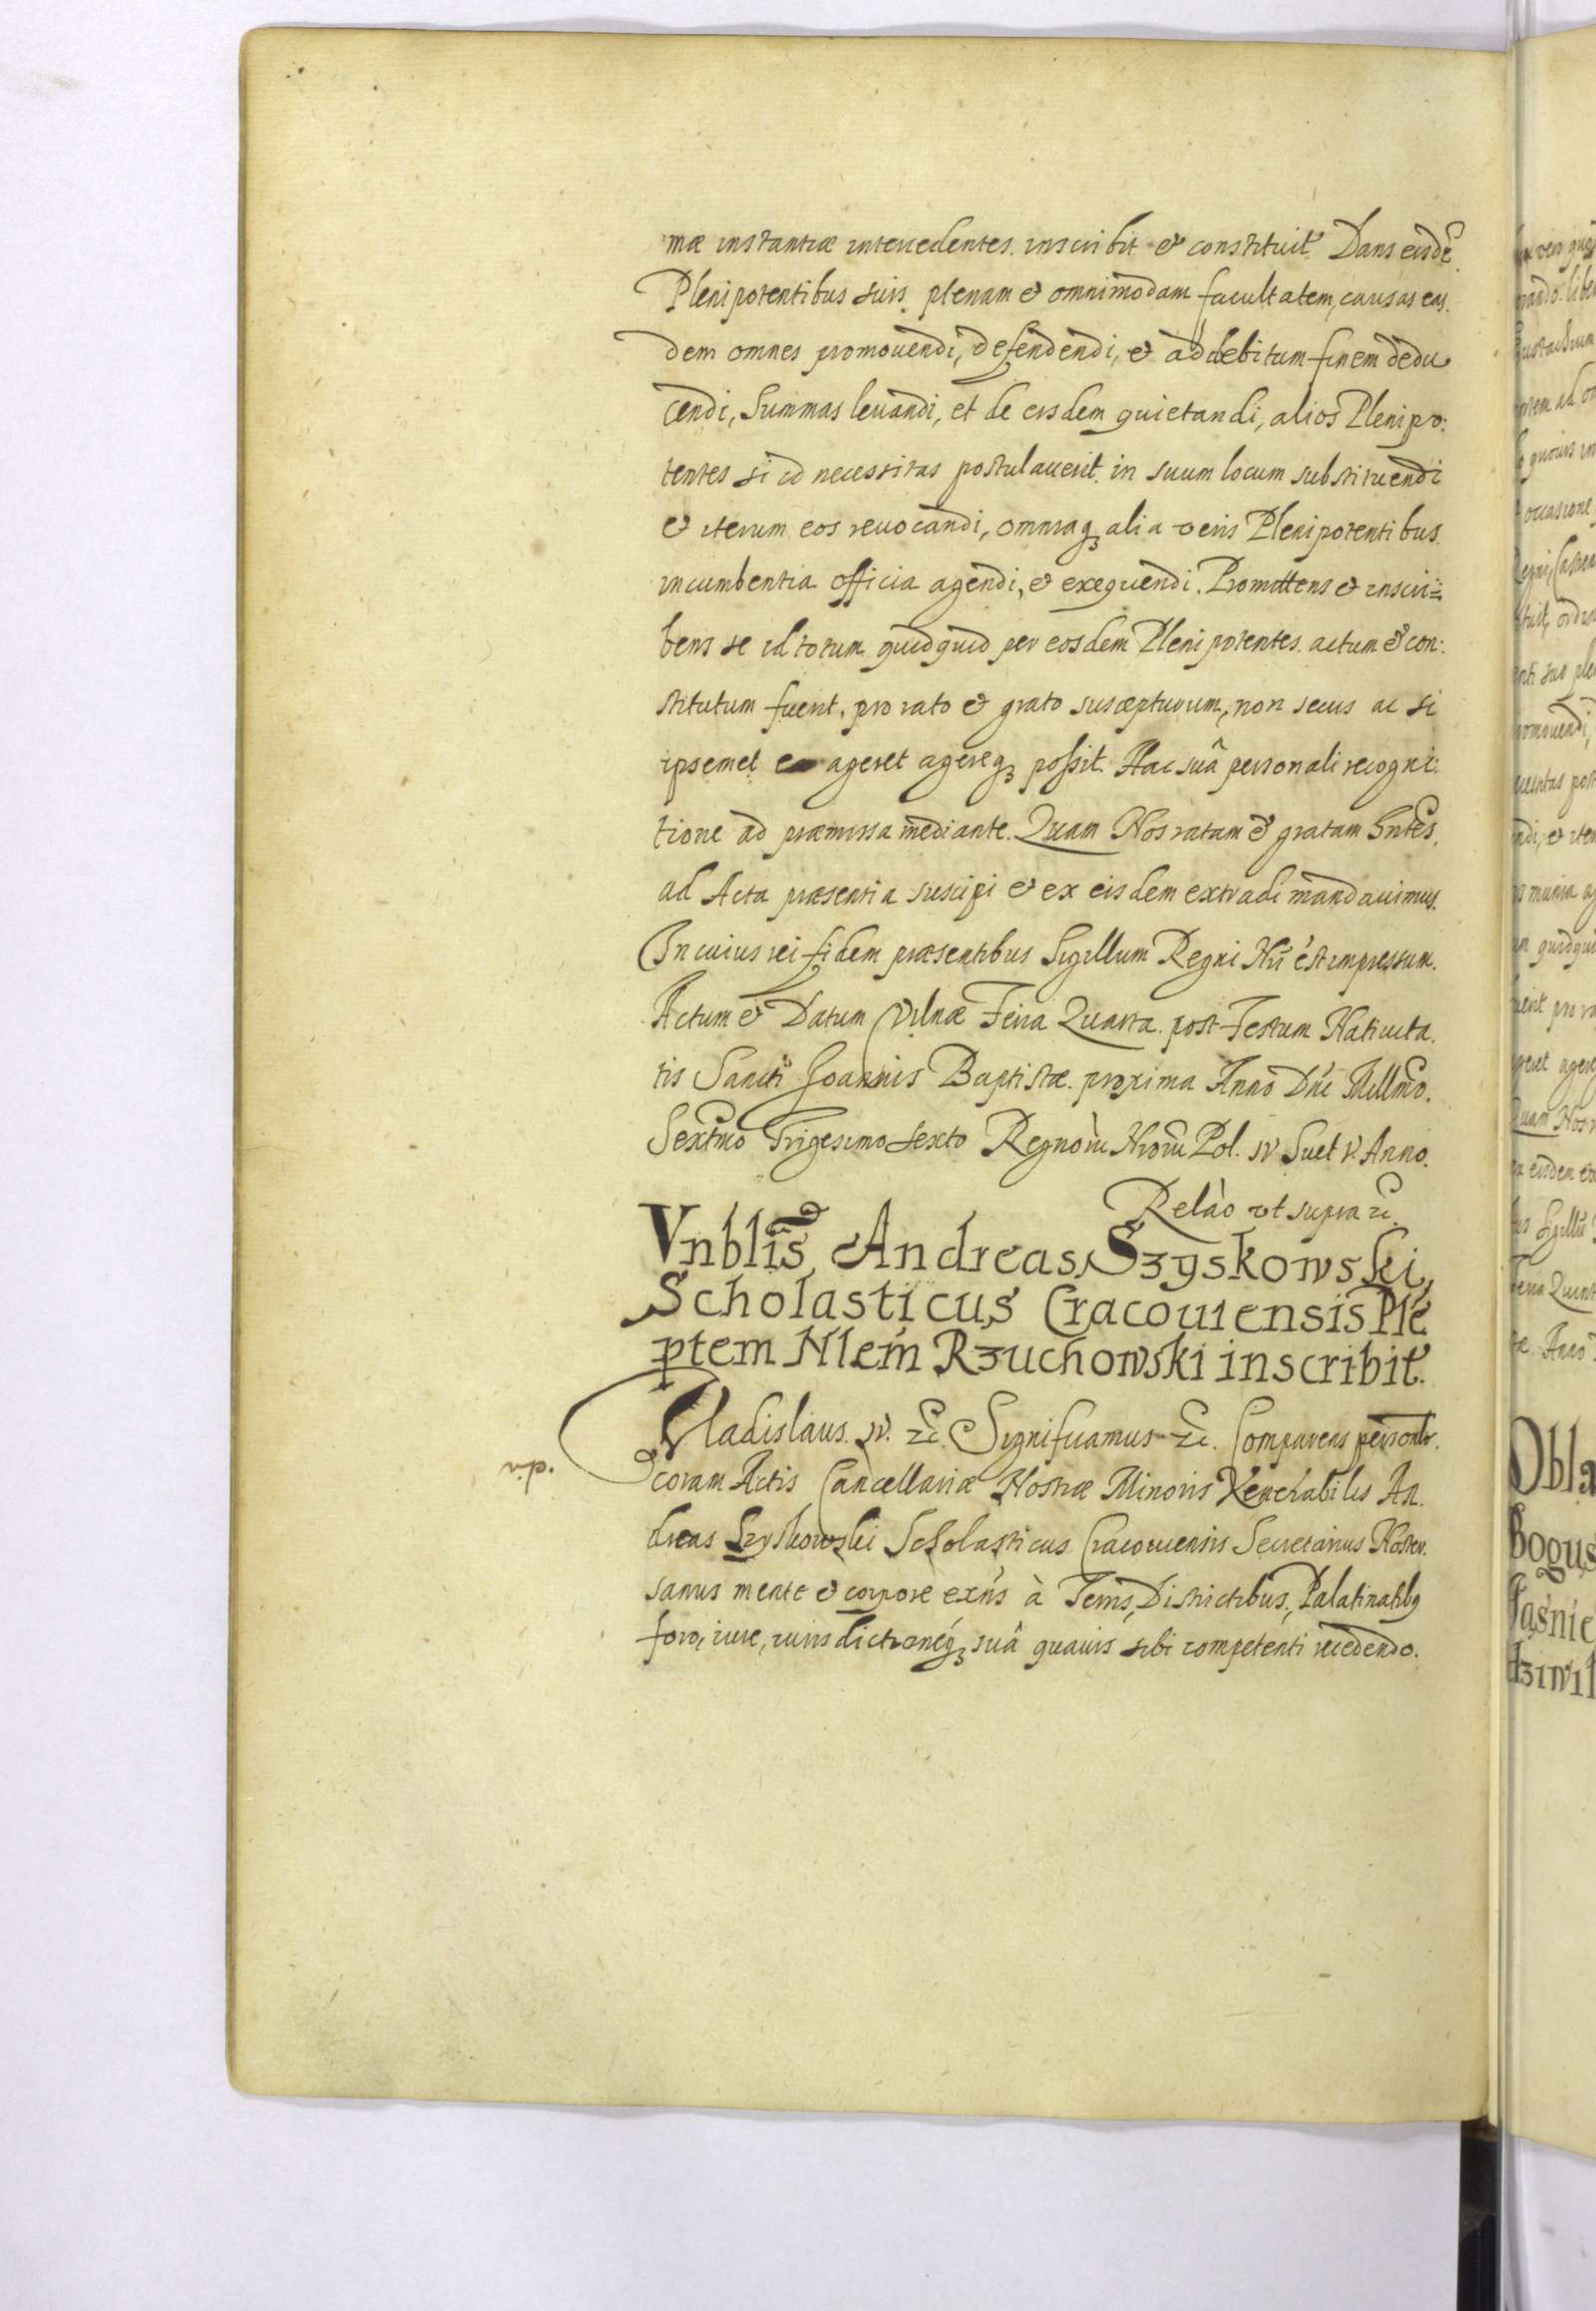 mæ instantiæ intercedentes. inscribit & constituit. Dans eisdē
Plenipotentibus suis plenam & omnimodam facultatem, causas eas.
dem omnes promovendi, defendendi, & ad debitum finem dedu
cendi, Summas levandi, et de eisdem quietandi, alios Plenipo:
tentes si id necessitas postulaverit in suum locum substituendi
& iterum eos revocandi, omniaq₃ alia veris Plenipotentibus
incumbentia officia agendi, & exequendi. Promittens & inscri=
bens se id totum quidquid per eosdem Plenipotentes. actum & con:
stitutum fuerit, pro rato & grato suscepturum, non secus ac si
ipsemet ageret agereq₃ possit. Hac suâ personali recogni:
tione ad præmissa mediante. Quam Nos ratam & gratam hntes,
ad Acta præsentia suscipi & ex eisdem extradi mandavimus.
In cuius rei fidem præsentibus Sigillum Regni Nrī est impressum.
Actum & Datum Vilnæ Feria Quarta post Festum Nativita.
tis Sancti Joannis Baptistæ proxima Anno Dñi Millmo.
Sextmo Trigesimo sexto Regnorū Nrorū Pol. IV Suet V. Anno.
Relào vt supra &c.
Vnblis Andreas Szyskowski,
Scholasticus Cracouiensis Ple
ptem Nlem Rzuchowski inscribit.
Vladislaus. IV. &c. Significamus &c. Comparens personlr.
coram Actis Cancellariæ Nostræ Minoris Venerabilis An.
dreas Szyskowski Scholasticus Cracouiensis Secretarius Noster.
sanus mente & corpore exñs à Terris, Districtibus, Palatinatibq
foro, iure, iurisdictionéq₃ suâ quavis sibi competenti recedendo.